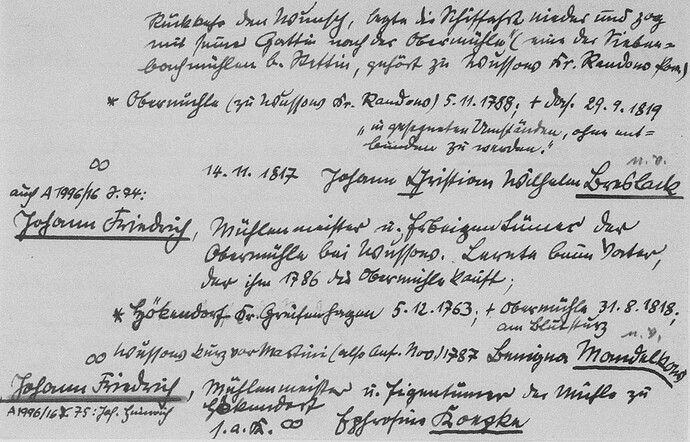 Rückkehr den Wunsch, legte die Schiffahrt nieder und zog
mit seiner Gattin nach der Obermühle (eine der Sieben-
bachmühlen b. Stettin, gehört zu Wussow Kr. Randow Pom.)
* Obermühle (zu Wussow Kr. Randow) 5.11.1788; + das. 29.9.1819
"in gesegneten Umständen, ohne ent-
bunden zu werden."
∞ 14.11.1817 Johann Christian Wilhelm Breslack
n.v.
auch A1996/16 S.74:
Johann Friedrich, Mühlenmeister u. Erbeigentümer der
Obermühle bei Wussow. Lernte beim Vater,
der ihm 1786 die Obermühle kauft;
* Hökendorf Kr. Greifenhagen 5.12.1763; + Obermühle 31.8.1818;
am Blutsturz
n.v.
∞ Wussow kurz vor Martini (also Anf. Nov.) 1787 Benigna Mandelkow
Johann Friedrich, Mühlenmeister u. Eigentümer der Mühle zu
A1996/16 S.75: Joh. Heinrich
Hökendorf
1.a.K. ∞ Ephrosine Koepke